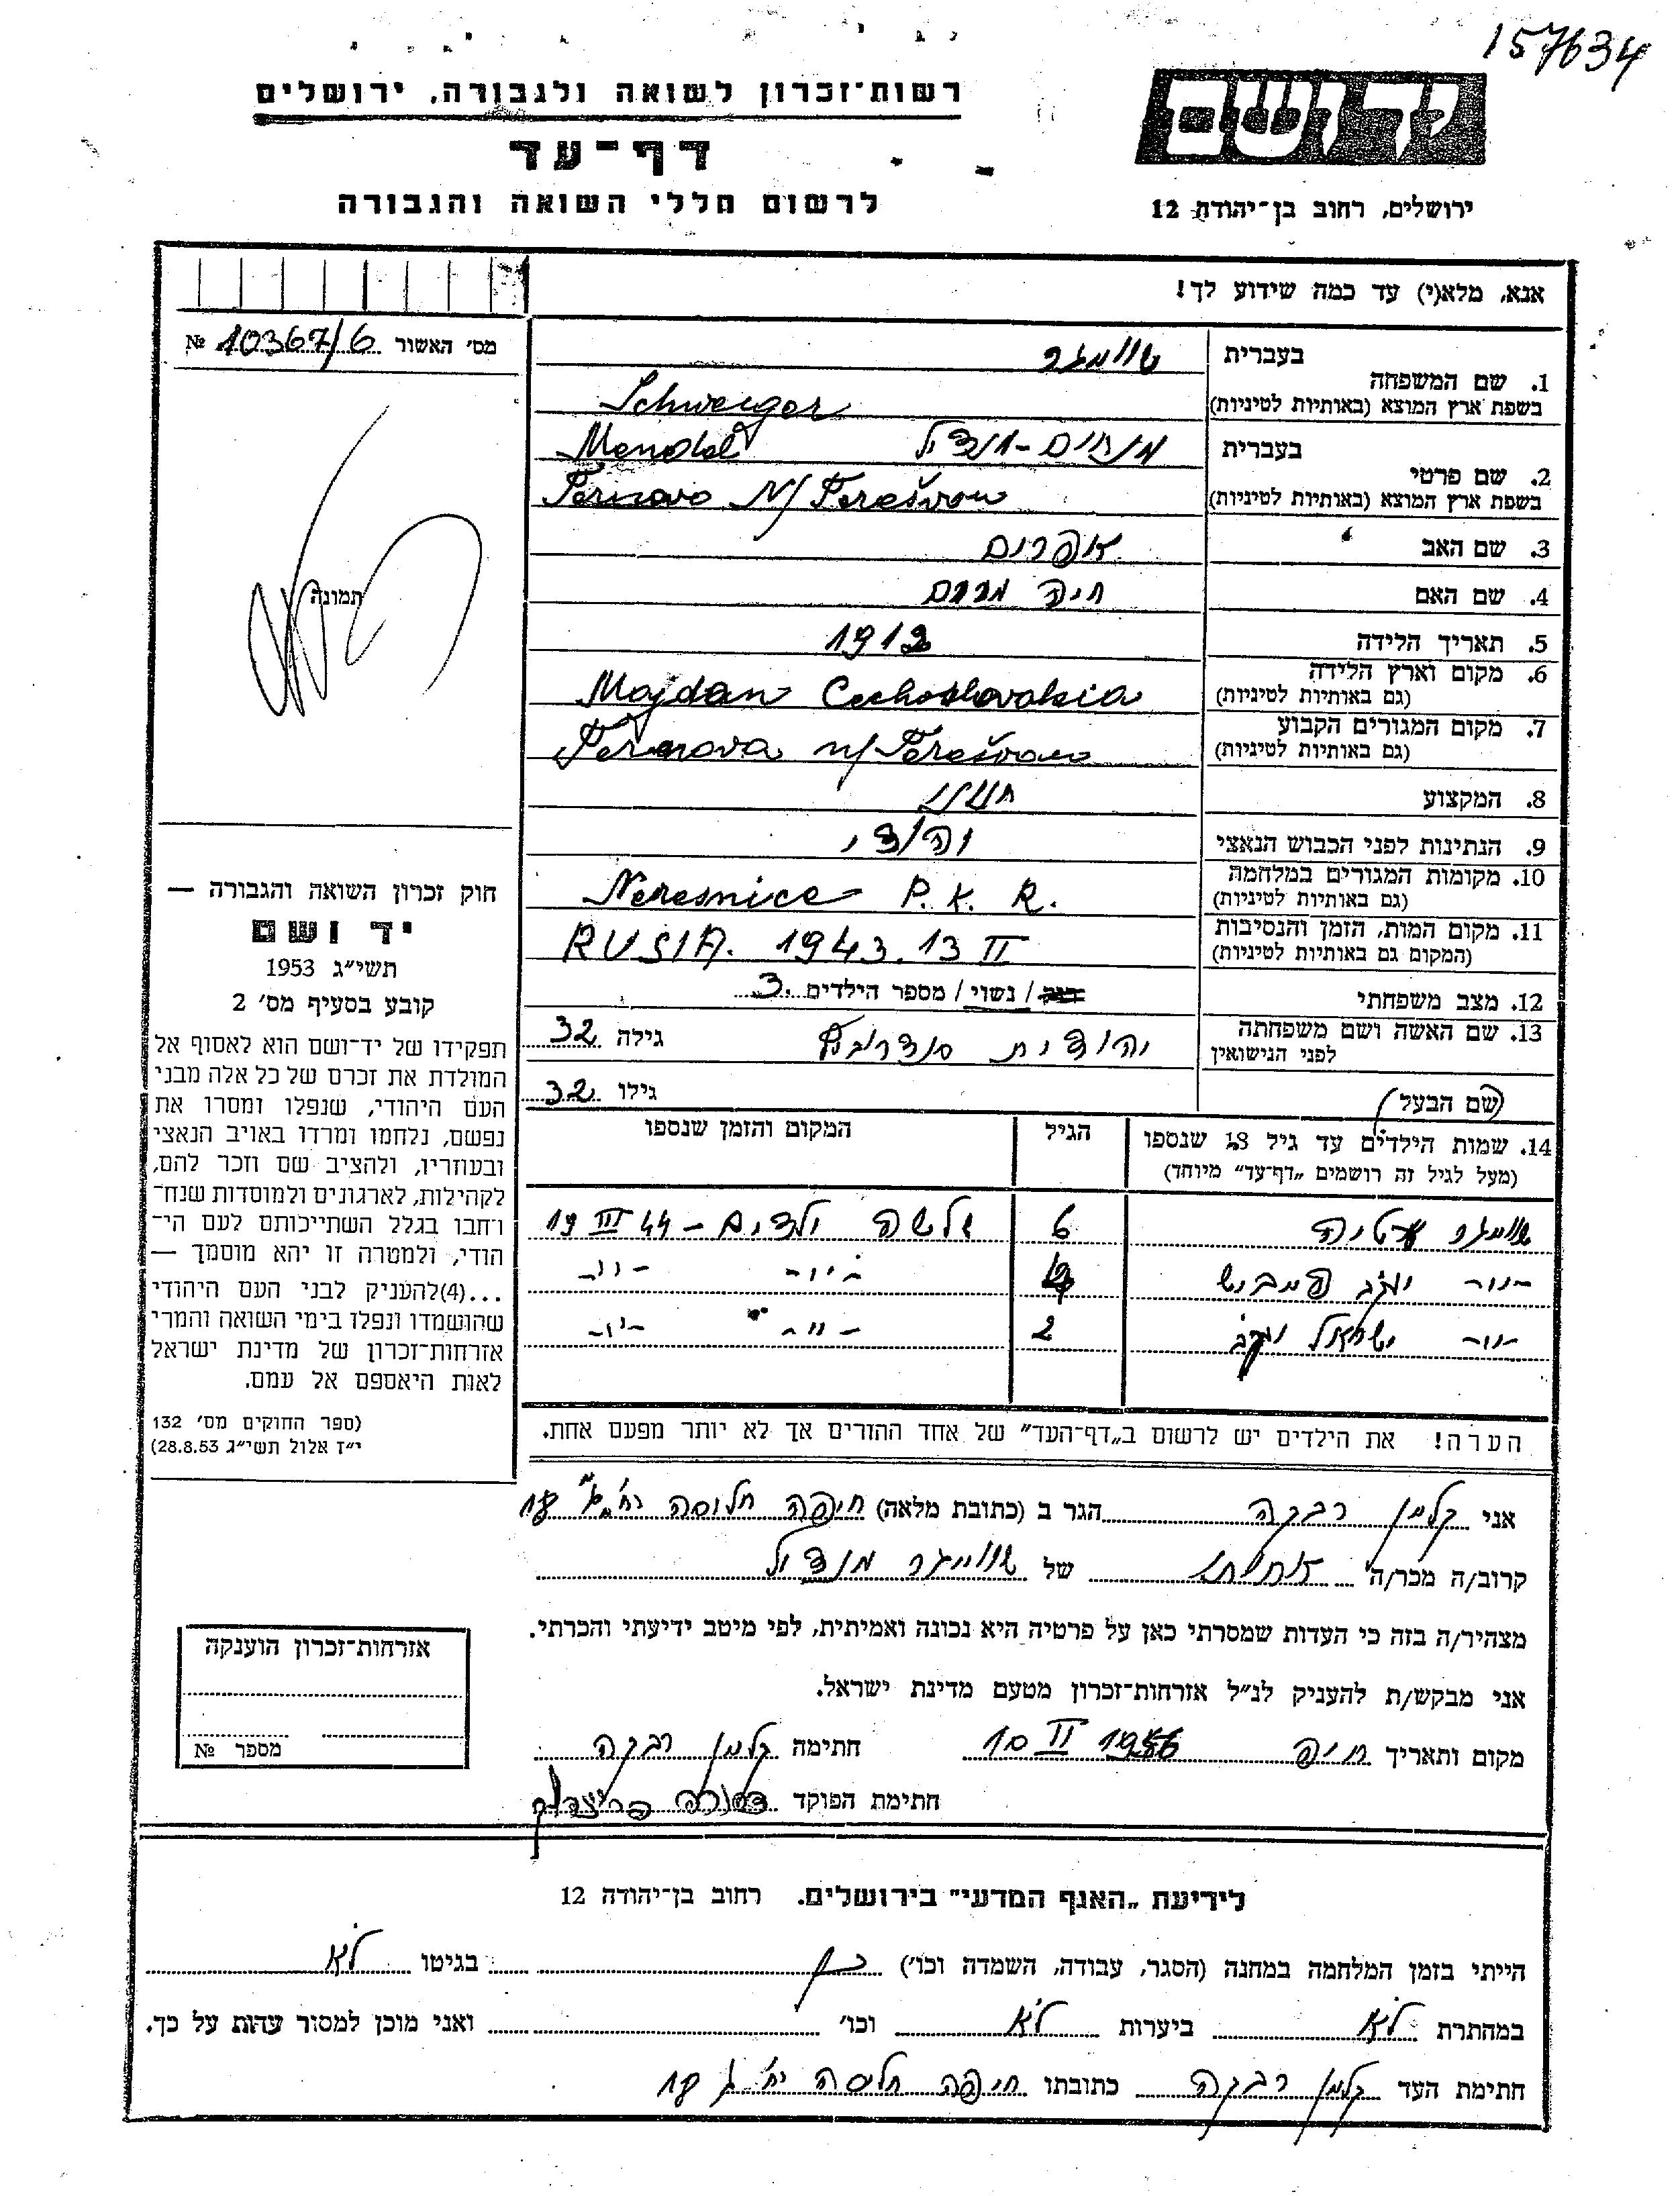 157634
רשות־זכרון לשואה ולגבורה, ירושלים
דף־עד
לרשום חללי השואה והגבורה
ידושם
ירושלים, רחוב בן־יהודה 12
אנא, מלא(י) עד כמה שידוע לך!
מס׳ האשור 10367/6 №
תמונה
חוק זכרון השואה והגבורה —
יד ושם
תשי״ג 1953
קובע בסעיף מס׳ 2
תפקידו של יד־ושם הוא לאסוף אל
המולדת את זכרם של כל אלה מבני
העם היהודי, שנפלו ומסרו את
נפשם, נלחמו ומרדו באויב הנאצי
ובעוזריו, ולהציב שם וזכר להם,
לקהילות, לארגונים ולמוסדות שנח־
רחבו בגלל השתייכותם לעם הי־
הודי, ולמטרה זו יהא מוסמך —
...(4)להעניק לבני העם היהודי
שהושמדו ונפלו בימי השואה והמרי
אזרחות־זכרון של מדינת ישראל
לאות היאספם אל עמם.
(ספר החוקים מס׳ 132
י״ז אלול תשי״ג 28.8.53)
1. שם המשפחה
בעברית שווייגר
בשפת ארץ המוצא (באותיות לטיניות) Schweiger
2. שם פרטי
בעברית מנחם-מנדיל Mendel
בשפת ארץ המוצא (באותיות לטיניות) Ternavo N/ Terešvou
3. שם האב אפרים
4. שם האם חיה מרים
5. תאריך הלידה 1912
6. מקום וארץ הלידה Majdan Cechoslovakia
(גם באותיות לטיניות)
7. מקום המגורים הקבוע Ternova n/ Terešvou
(גם באותיות לטיניות)
8. המקצוע חנוני
9. הנתינות לפני הכבוש הנאצי יהודי
10. מקומות המגורים במלחמה Neresnice P. K. R.
(גם באותיות לטיניות)
11. מקום המות, הזמן והנסיבות RUSIA. 1943. 13 II
(המקום גם באותיות לטיניות)
12. מצב משפחתי רווק / נשוי / מספר הילדים 3
13. שם האשה ושם משפחתה יהודית גילה 32
לפני הנישואין
(שם הבעל) גילו 32
14. שמות הילדים עד גיל 18 שנספו הגיל המקום והזמן שנספו
(מעל לגיל זה רושמים „דף־עד״ מיוחד)
שווייגר 6 שלשה ילדים - 44 III 19
-״- יעקב 4 -״- -״-
-״- ישראל יעקב 2 -״- -״-
הערה! את הילדים יש לרשום ב„דף־העד״ של אחד ההורים אך לא יותר מפעם אחת.
אני קלמן רבקה הגר ב (כתובת מלאה) חיפה חליסה רח׳ 18
קרוב/ה מכר/ה אחותו של שווייגר מנדיל
מצהיר/ה בזה כי העדות שמסרתי כאן על פרטיה היא נכונה ואמיתית, לפי מיטב ידיעתי והכרתי.
אני מבקש/ת להעניק לנ״ל אזרחות־זכרון מטעם מדינת ישראל.
מקום ותאריך חיפה 10 II 1956 חתימה קלמן רבקה
חתימת הפוקד
אזרחות־זכרון הוענקה
מספר №
לידיעת „האגף המדעי״ בירושלים. רחוב בן־יהודה 12
הייתי בזמן המלחמה במחנה (הסגר, עבודה, השמדה וכו׳) כן בגיטו לא
במחתרת לא ביערות לא וכו׳ ואני מוכן למסור עדות על כך.
חתימת העד קלמן רבקה כתובתו חיפה חליסה רח׳ ג 18